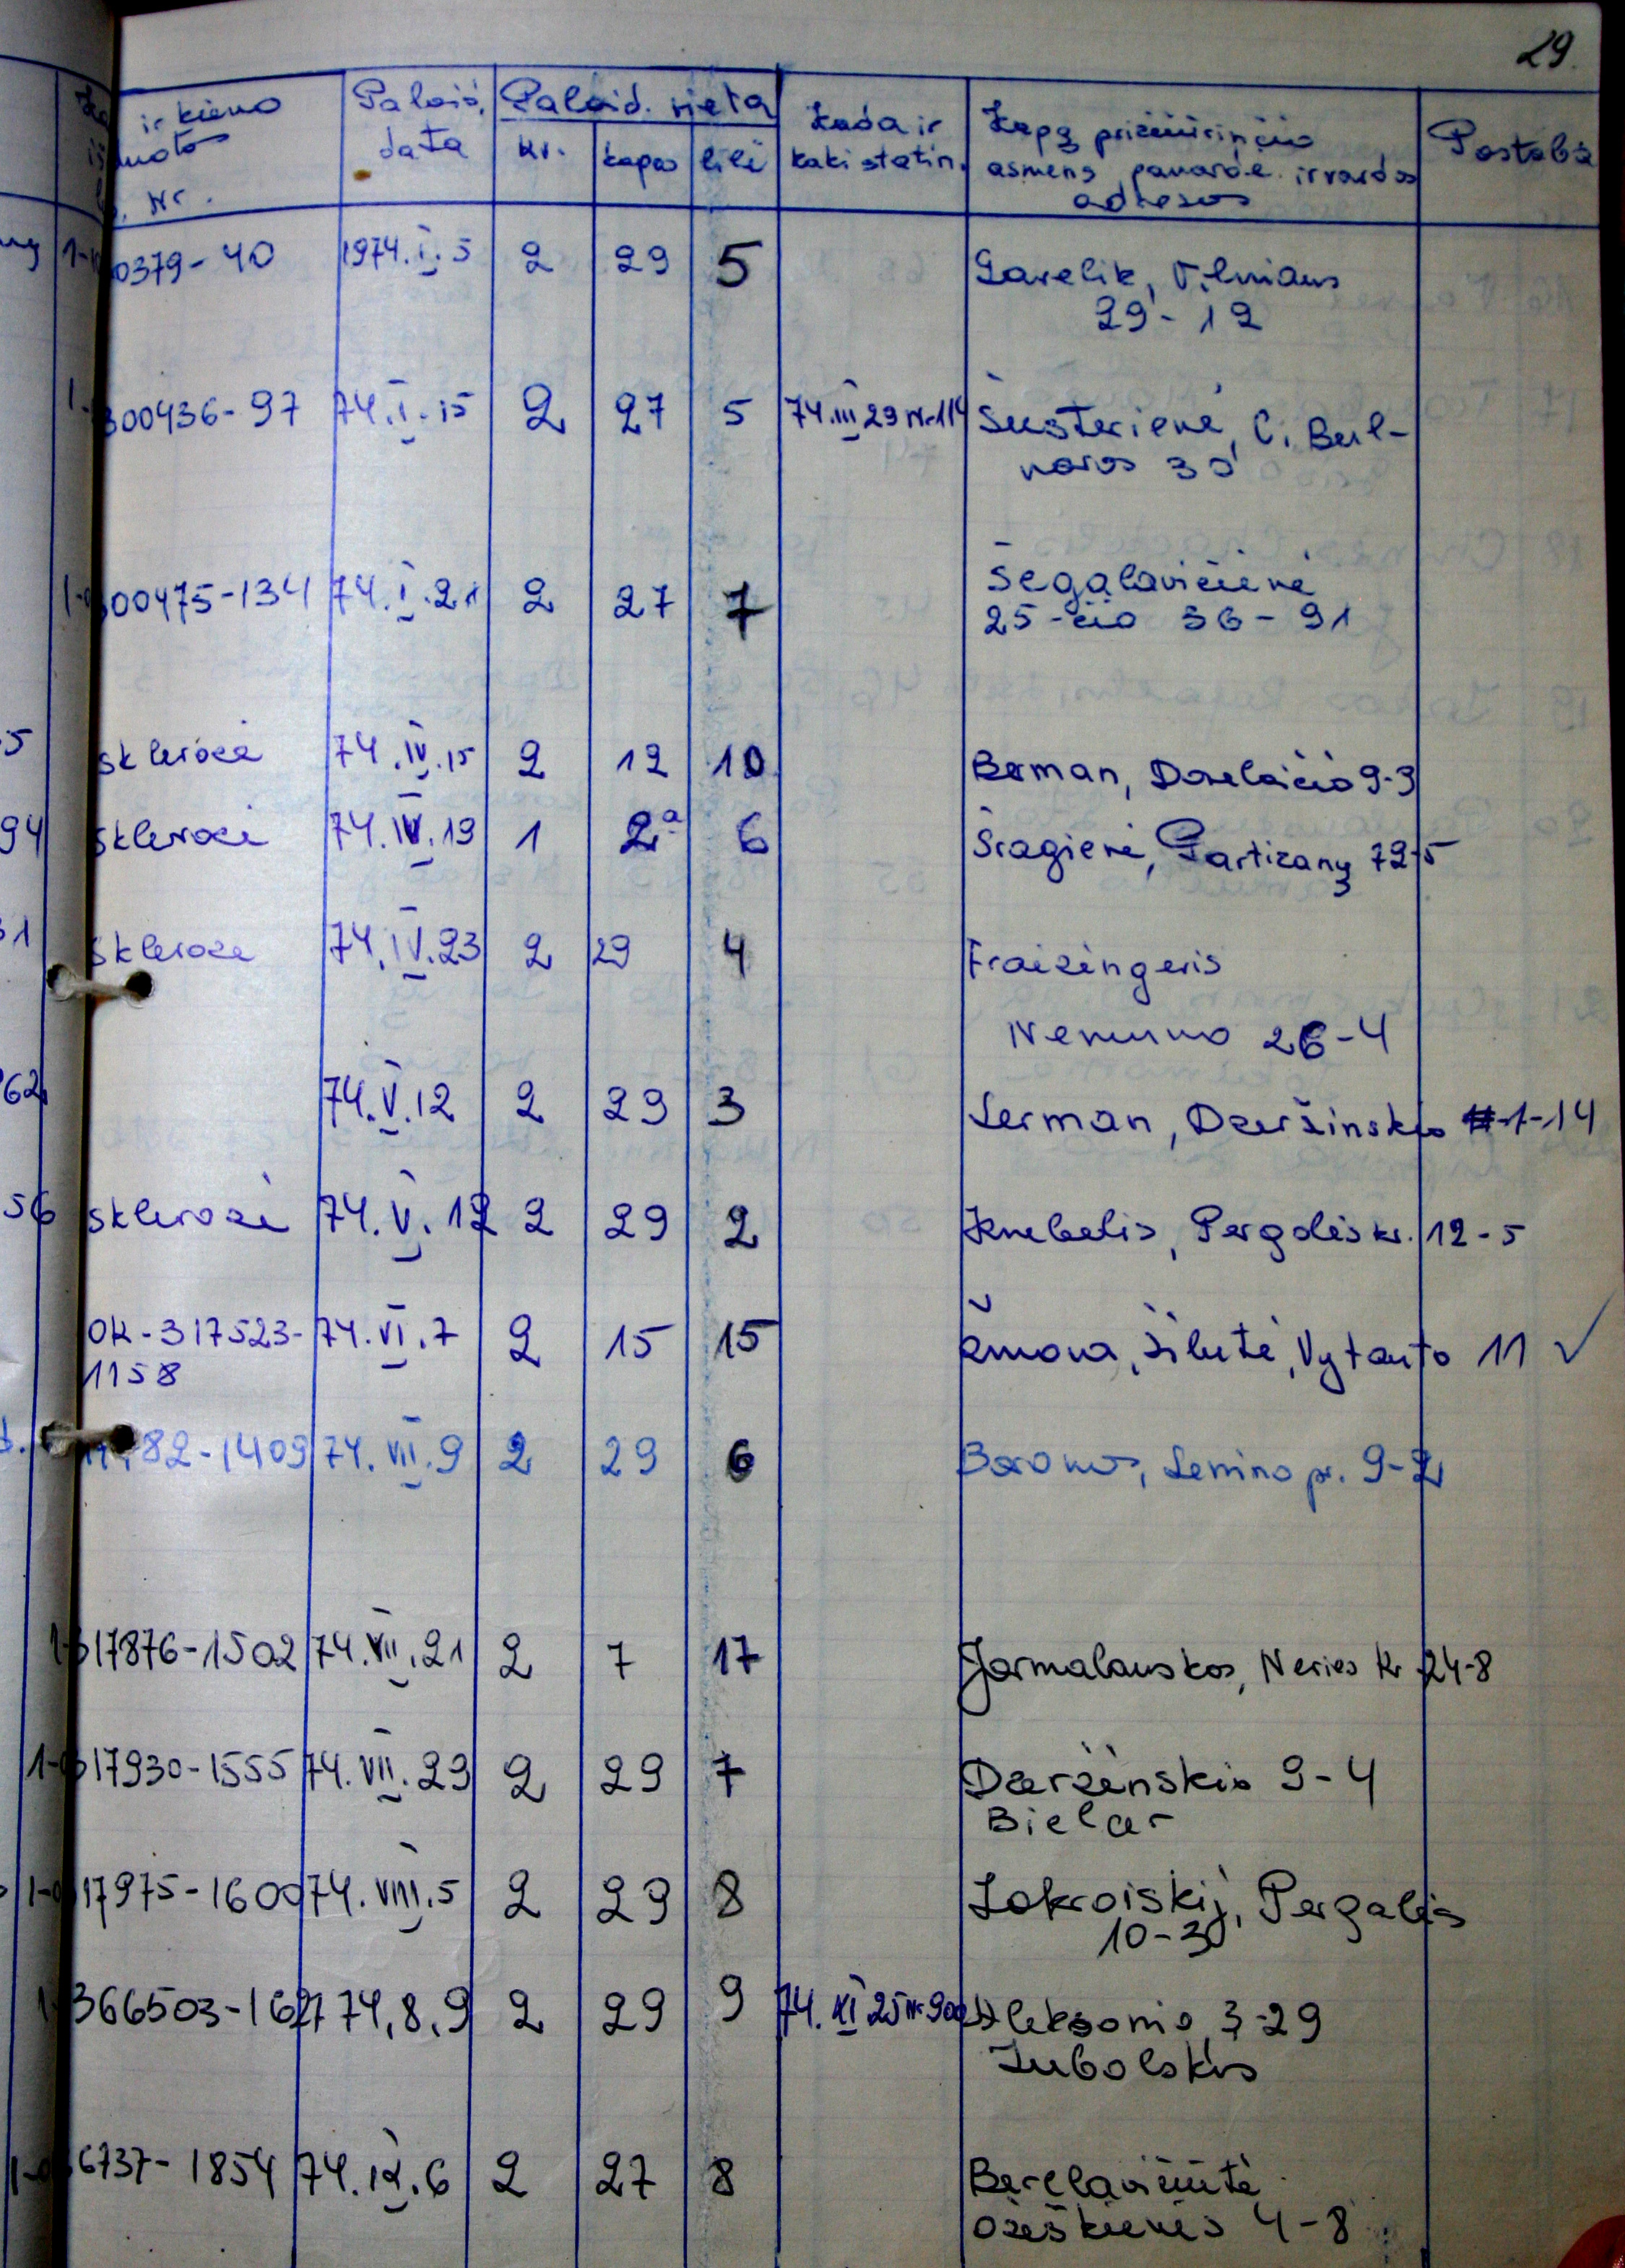 29.
ir kieno
Nr.
Palaid.
data
Palaid. vieta
kv.
kapas
eilė
Kada ir
koki statin.
Kapą prižiūrinčio
asmens pavardė ir vardas
adresas
Pastaba
0379-40 1974.I.5 2 29 5 Garelik, Vilniaus
29-12
300436-97 74.I.15 2 27 5 74.III 29 Nr 114 Šusterienė, C. Bul-
varos 30
1- 00475-134 74.I.21 2 27 7 Segalavičienė
25-čio 36-91
5 sklerozė 74.IV.15 2 12 10 Berman, Donelaičio 9-3
94 sklerozė 74.IV.19 1 2a 6 Šragienė, Partizanų 72-5
31 sklerozė 74.IV.23 2 29 4 Fraizingeris
Nemuno 26-4
62 74.V.12 2 29 3 Lerman, Dzeržinskio 1-14
56 sklerozė 74.V.12 2 29 2 Knebelis, Pergalės kr. 12-5
OK-317523- 74.VI.7 2 15 15 Žmova, Šilutė, Vytauto 11 ✓
1158
82-1409 74.VII.9 2 29 6 Baronas, Lenino pr. 9-2
317876-1502 74.VII.21 2 7 17 Jarmalauskas, Neries kr 24-8
1- 317930-1555 74.VII.29 2 29 7 Dzeržinskio 9-4
Bielar
1- 17975-1600 74.VIII.5 2 29 8 Zakroiskij, Pergalės
10-30
366503-1627 74,8,9 2 29 9 74.XI 25 Nr 900 Aleksonio 3-29
Zubolskis
6737-1854 74.IX.6 2 27 8 Berelavičiūtė
Ožeškienės 4-8